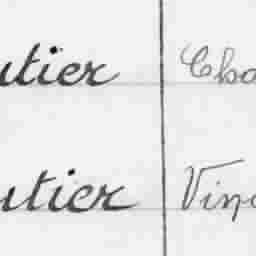 utier Cha
utier Vin